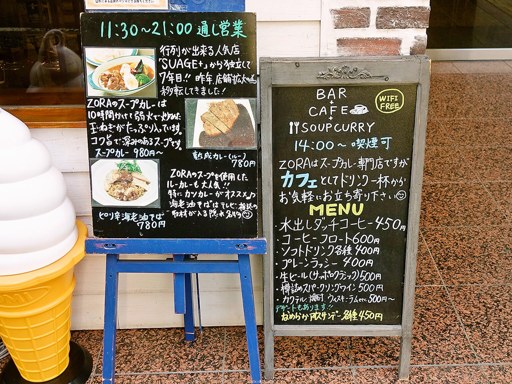 11:30〜21:00 通し営業
行列が出来る人気店
「SUAGE+」から独立して
7年目!! 昨年、店舗拡大の為
移転してきました!
ZORAのスープカレーは
10時間かけて弱火で炒めた
玉ねぎがたっぷり入っています。
コク旨で深みのあるスープです。
スープカレー 980円〜
熟成カレー(ルー)
780円
ZORAのスープを使用した
ルーカレーも大人気!!
特にカツカレーがオススメ♪
海老油そばはテレビ・雑誌の
取材が入る隠れ名物
ピリ辛海老油そば
780円
BAR
+
CAFE
+
SOUPCURRY
WIFI
FREE
14:00〜 喫煙可
ZORAはスープカレー専門店ですが
カフェとしてドリンク一杯から
お気軽にお立ち寄り下さい
MENU
・水出しダッチコーヒー450円
・コーヒーフロート600円
・ソフトドリンク各種400円
・プレーンラッシー 400円
・生ビール(サッポロクラシック)500円
・樽詰めスパークリングワイン500円
・カクテル・焼酎・ウィスキー・ラムetc 500円〜
デザートもあります!!
なめらかアイスサンデー各種450円